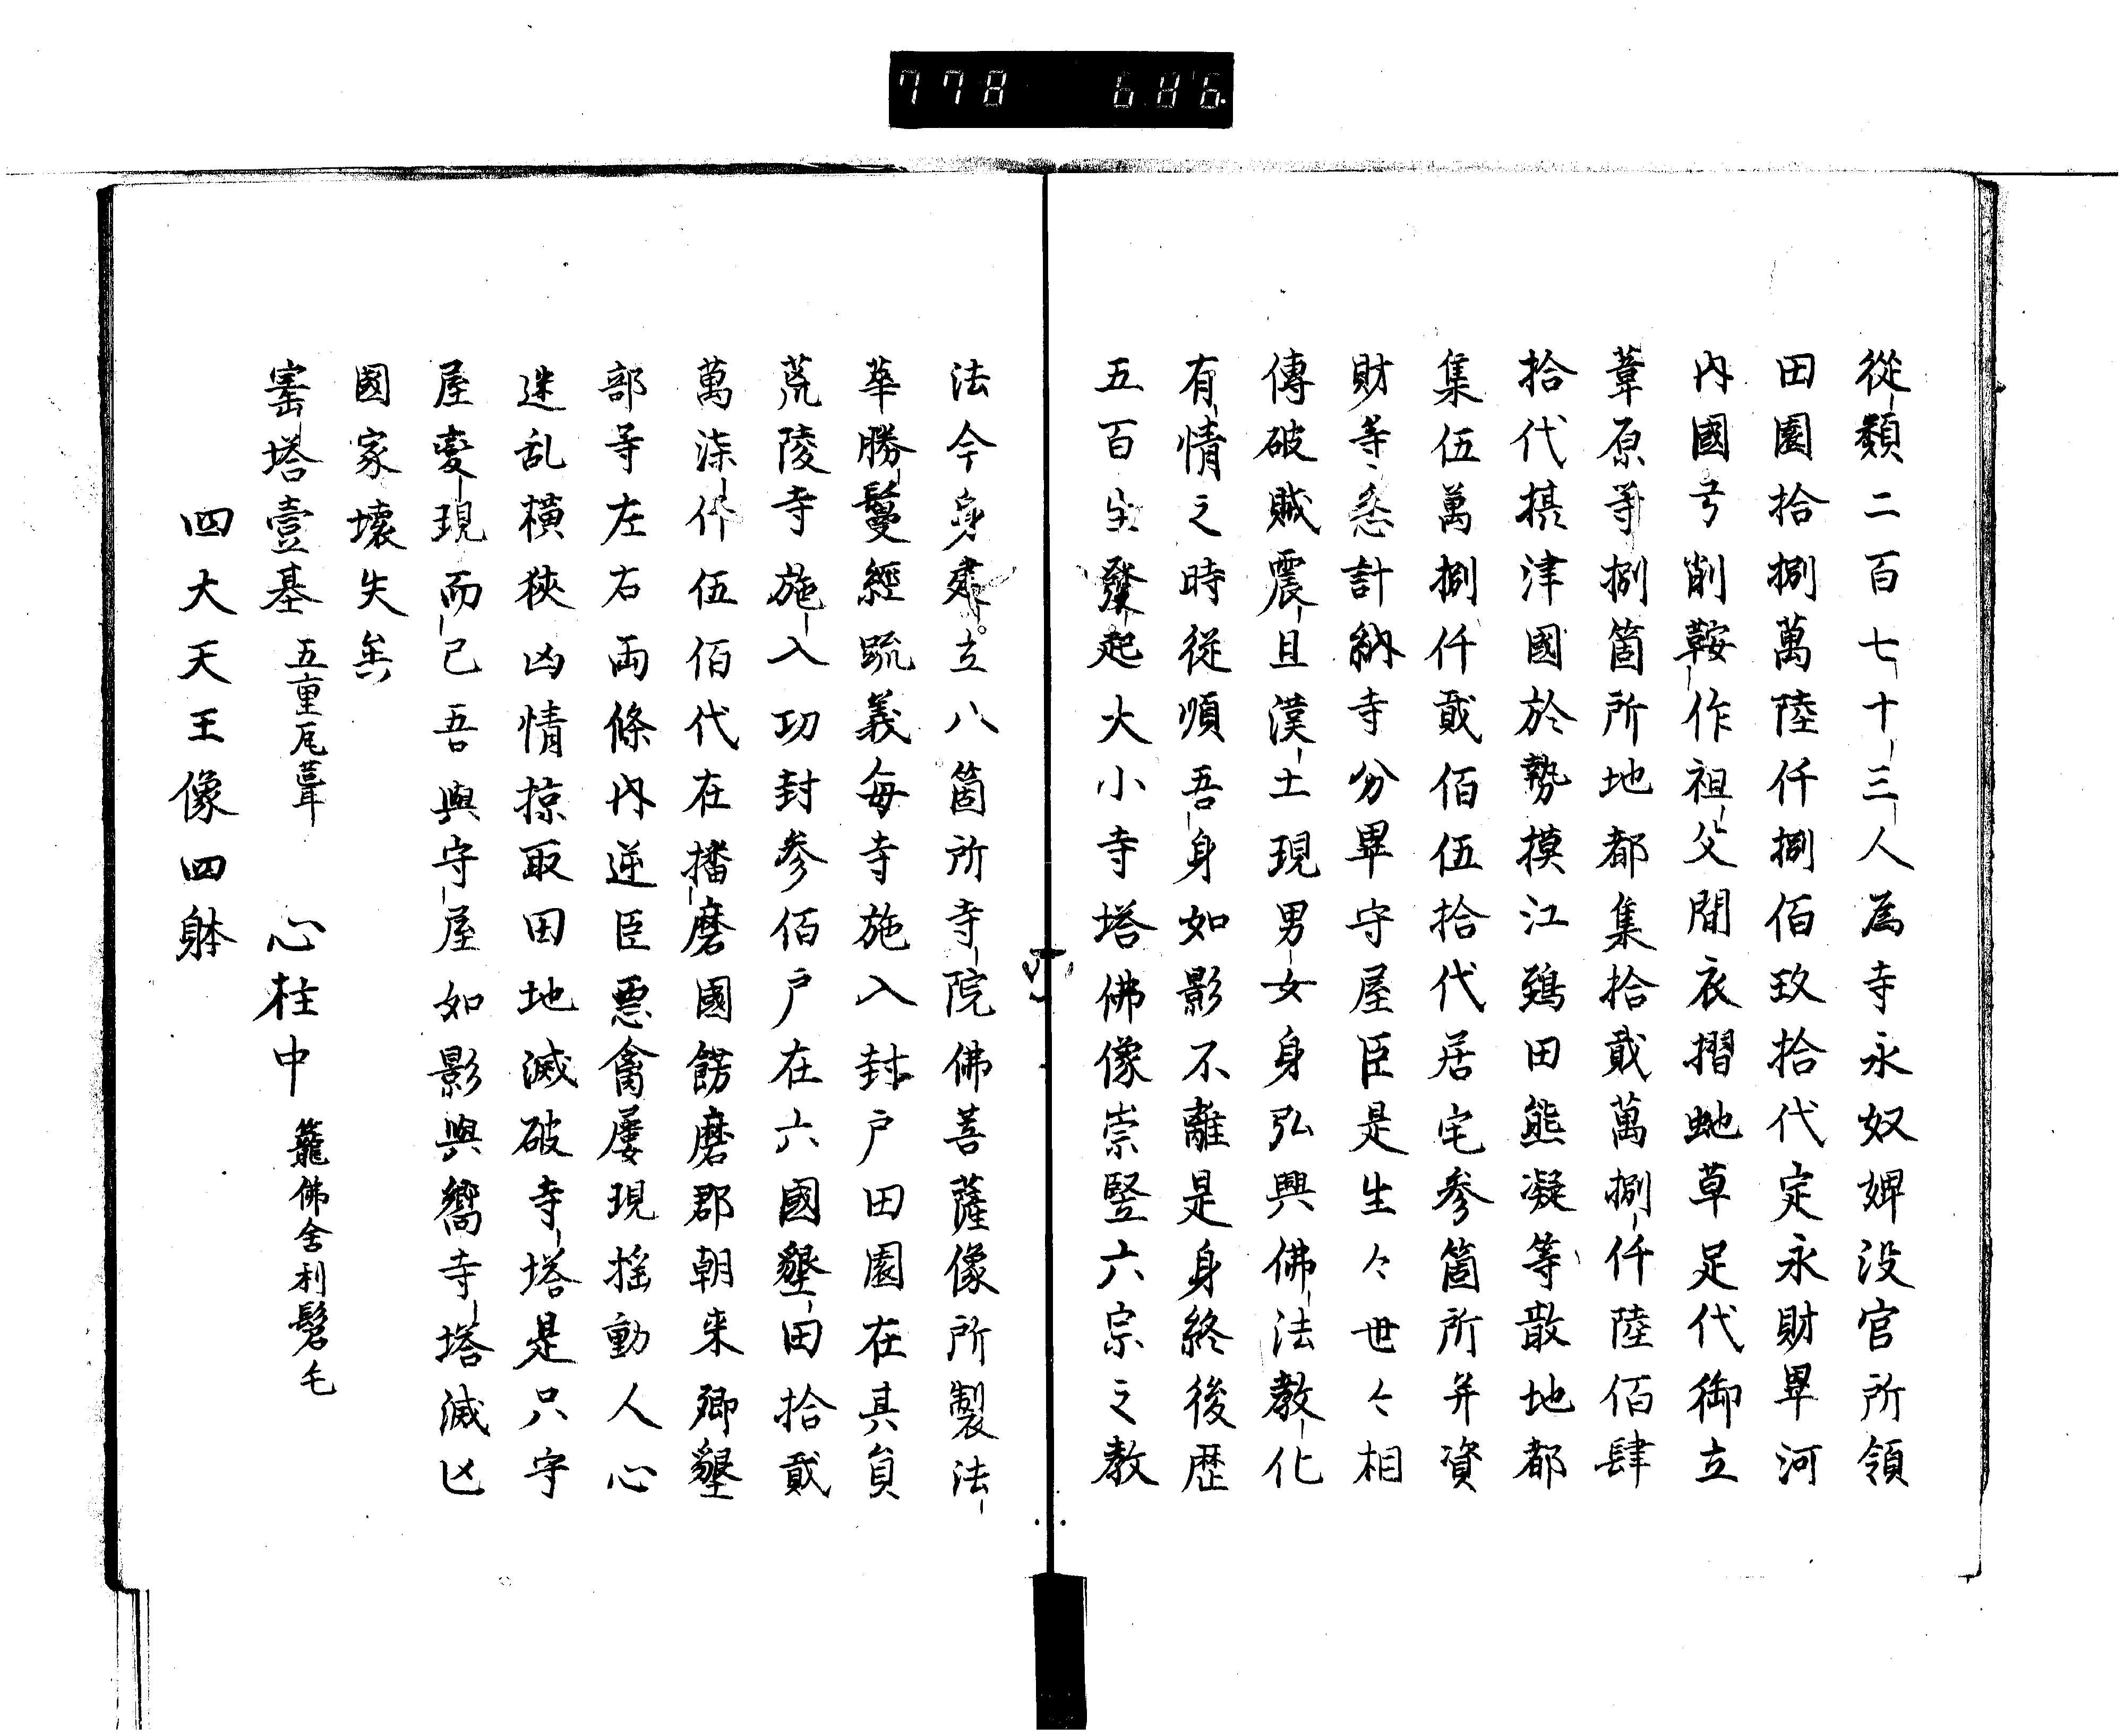 778 686
從類二百七十三人為寺永奴婢没官所領
田園拾捌萬陸仟捌佰玖拾代定永財畢河
内國弓削鞍作祖父間衣摺虵草足代御立
葦原等捌箇所地都集拾貳萬捌仟陸佰肆
拾代摂津國於勢摸江鵄田熊凝等散地都
集伍萬捌仟貳佰伍拾代居宅参箇所并資
財等悉計納寺分畢守屋臣是生々世々相
傳破賊震旦漢土現男女身弘興佛法教化
有情之時從順吾身如影不離是身終後歴
五百生發起大小寺塔佛像崇竪六宗之教
法今身建立八箇所寺院佛菩薩像所製法
華勝鬘經疏義毎寺施入封戸田園在其員
荒陵寺施入功封参佰戸在六國墾田拾貳
萬漆仟伍佰代在播磨國餝磨郡朝来郷墾
部等左右両條内逆臣悪禽屡現揺動人心
迷乱横狹凶情掠取田地滅破寺塔是只守
屋變現而已吾與守屋如影與嚮寺塔滅亡
國家壞失矣
寚塔壹基 五重瓦葺 心柱中 籠佛舎利髻毛
四大天王像四躰